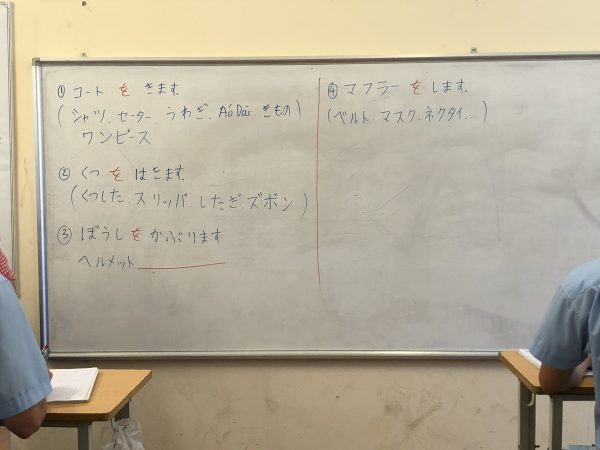 ① コート を きます.
(シャツ. セーター. うわぎ. Áo Dài. きもの)
ワンピース
② くつ を はきます.
(くつした. スリッパ. したぎ. ズボン)
③ ぼうし を かぶります
ヘルメット
④ マフラー を します.
(ベルト. マスク. ネクタイ...)